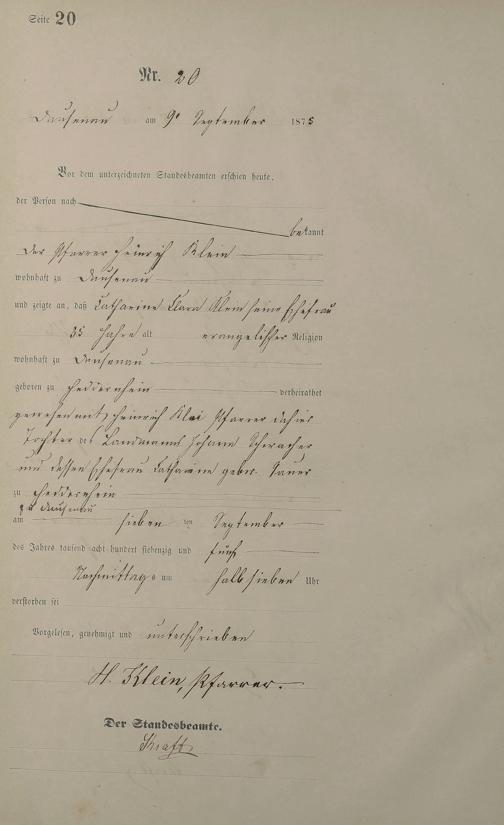 Seite 20
Nr. 20
Dausenau am 9. September 1875
Vor dem unterzeichneten Standesbeamten erschien heute,
der Person nach
bekannt
der Pfarrer Heinrich Klein
wohnhaft zu Dausenau
und zeigte an, daß Catharine Clara Klein seine Ehefrau
35 Jahre alt evangelischer Religion
wohnhaft zu Dausenau
geboren zu Heddernheim verheirathet
gewesen mit Heinrich Klein Pfarrer dahier
Tochter des Landmanns Johann
und dessen Ehefrau Catharina gebor.
zu Heddernheim
zu Dausenau
am sieben ten September
des Jahres tausend acht hundert siebenzig und fünf
Nachmittags um halb sieben Uhr
verstorben sei
Vorgelesen, genehmigt und unterschrieben
H. Klein, Pfarrer.
Der Standesbeamte.
Kraft